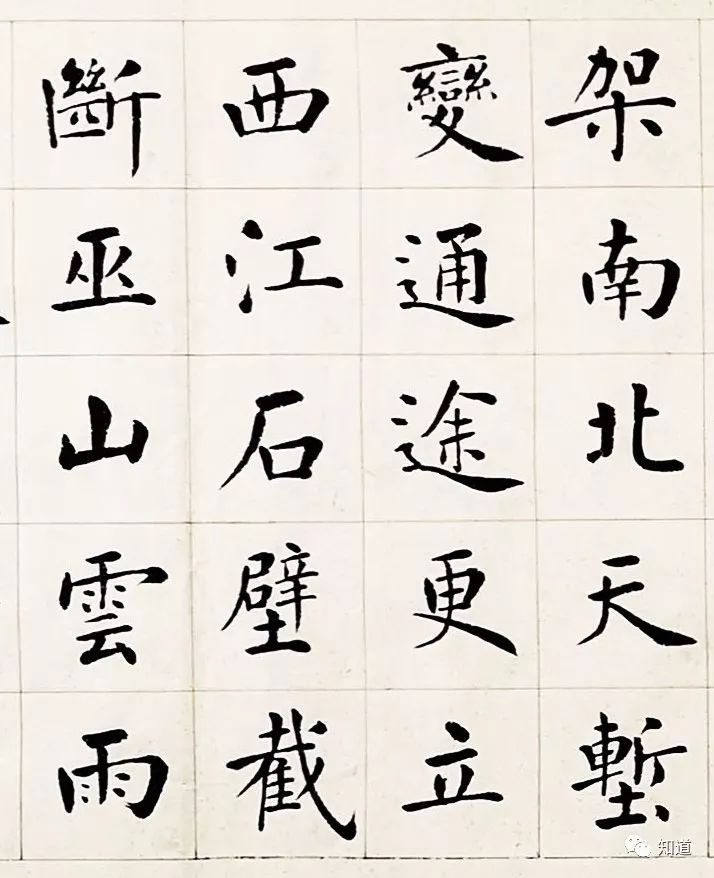 架南北天塹
變通途更立
西江石壁截
斷巫山雲雨
知道